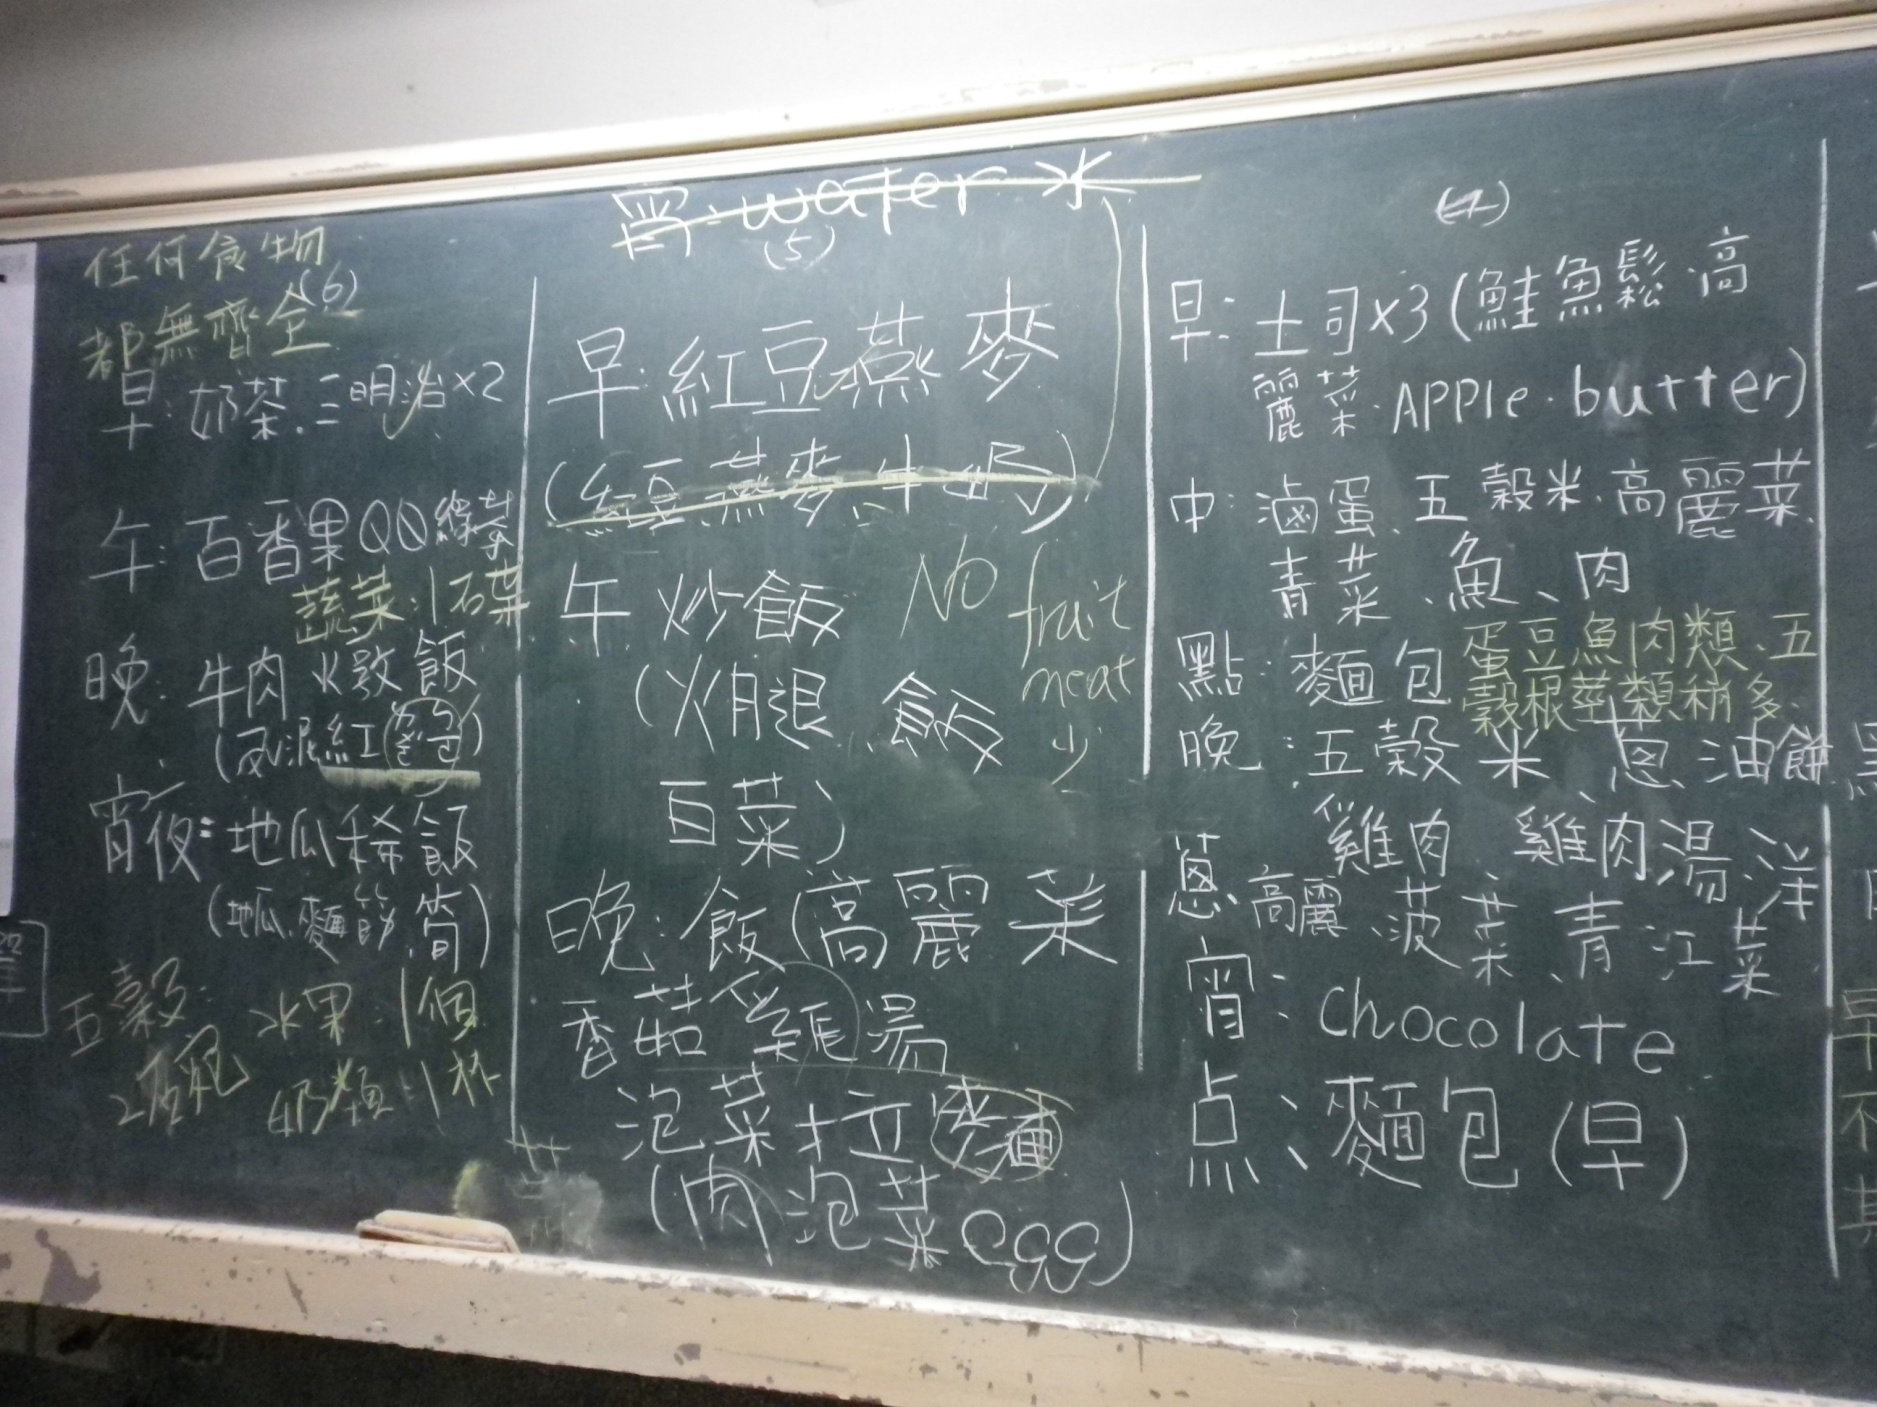 任何食物
都無齊全
(6)
早:奶茶.三明治×2
午:百香果QQ綠茶
蔬菜:1碟
晚:牛肉火敦飯
宵夜:地瓜稀飯
(地瓜.麵筋.筍)
五穀:
2碗
水果:1個
奶類:1杯
宵:water 水
(5)
早:紅豆燕麥
(紅豆.燕麥.牛奶)
午 炒飯
No fruit
meat
少
(火腿.飯
百菜)
晚:飯(高麗菜
香菇雞湯
泡菜拉麵
(肉泡菜egg)
早:土司×3(鮭魚鬆.高
麗菜.APPle.butter)
中:滷蛋.五穀米.高麗菜.
青菜、魚、肉
點:麵包
蛋豆魚肉類、五
穀根莖類稍多.
晚:五穀米、蔥油餅
雞肉 雞肉湯、洋
蔥.高麗、菠菜、青江菜
宵:chocolate
点、麵包(早)
早
不